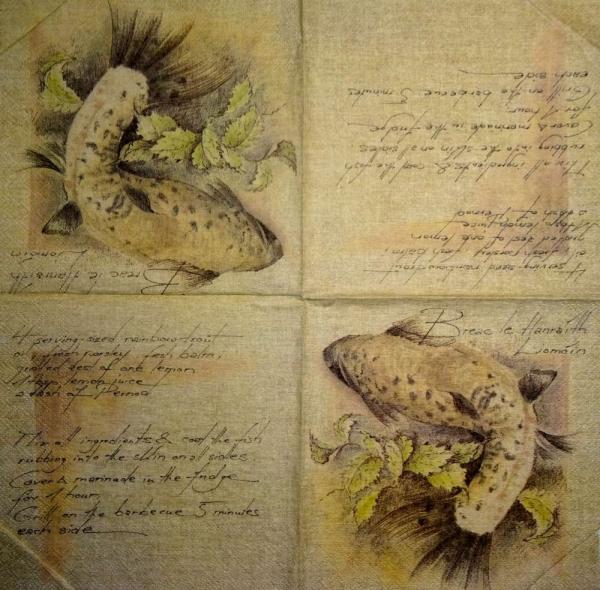 Breac le Hanraith
Liomóin
4 serving-sized rainbow trout
oil, fresh parsley, fresh balm,
grated zest of one lemon
1 tbsp lemon juice
a dash of Pernod
Mix all ingredients & coat the fish
rubbing into the skin on all sides
Cover & marinade in the fridge
for 1 hour
Grill on the barbecue 5 minutes
each side
4 serving-sized rainbow trout
oil, fresh parsley, fresh balm,
grated zest of one lemon
1 tbsp lemon juice
a dash of Pernod
Mix all ingredients & coat the fish
rubbing into the skin on all sides
Cover & marinade in the fridge
for 1 hour
Grill on the barbecue 5 minutes
each side
Breac le Hanraith
Liomóin